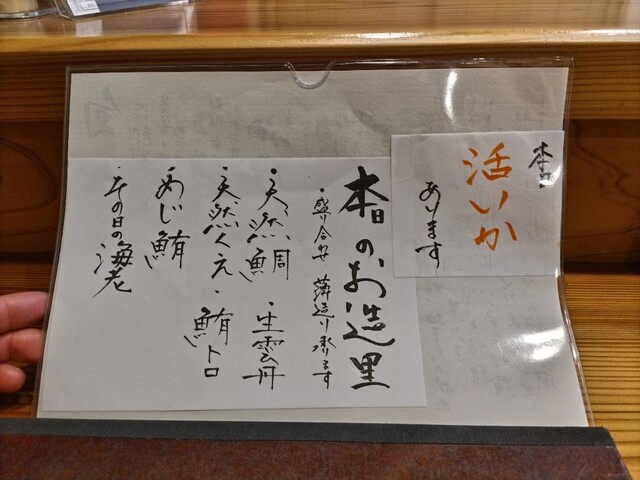 本日
活いか
あります
本日のお造里
・盛り合せ 薄造り承ります
・天然鯛 ・生雲丹
・天然くえ・鮪トロ
・あじ鮪
・その日の海老